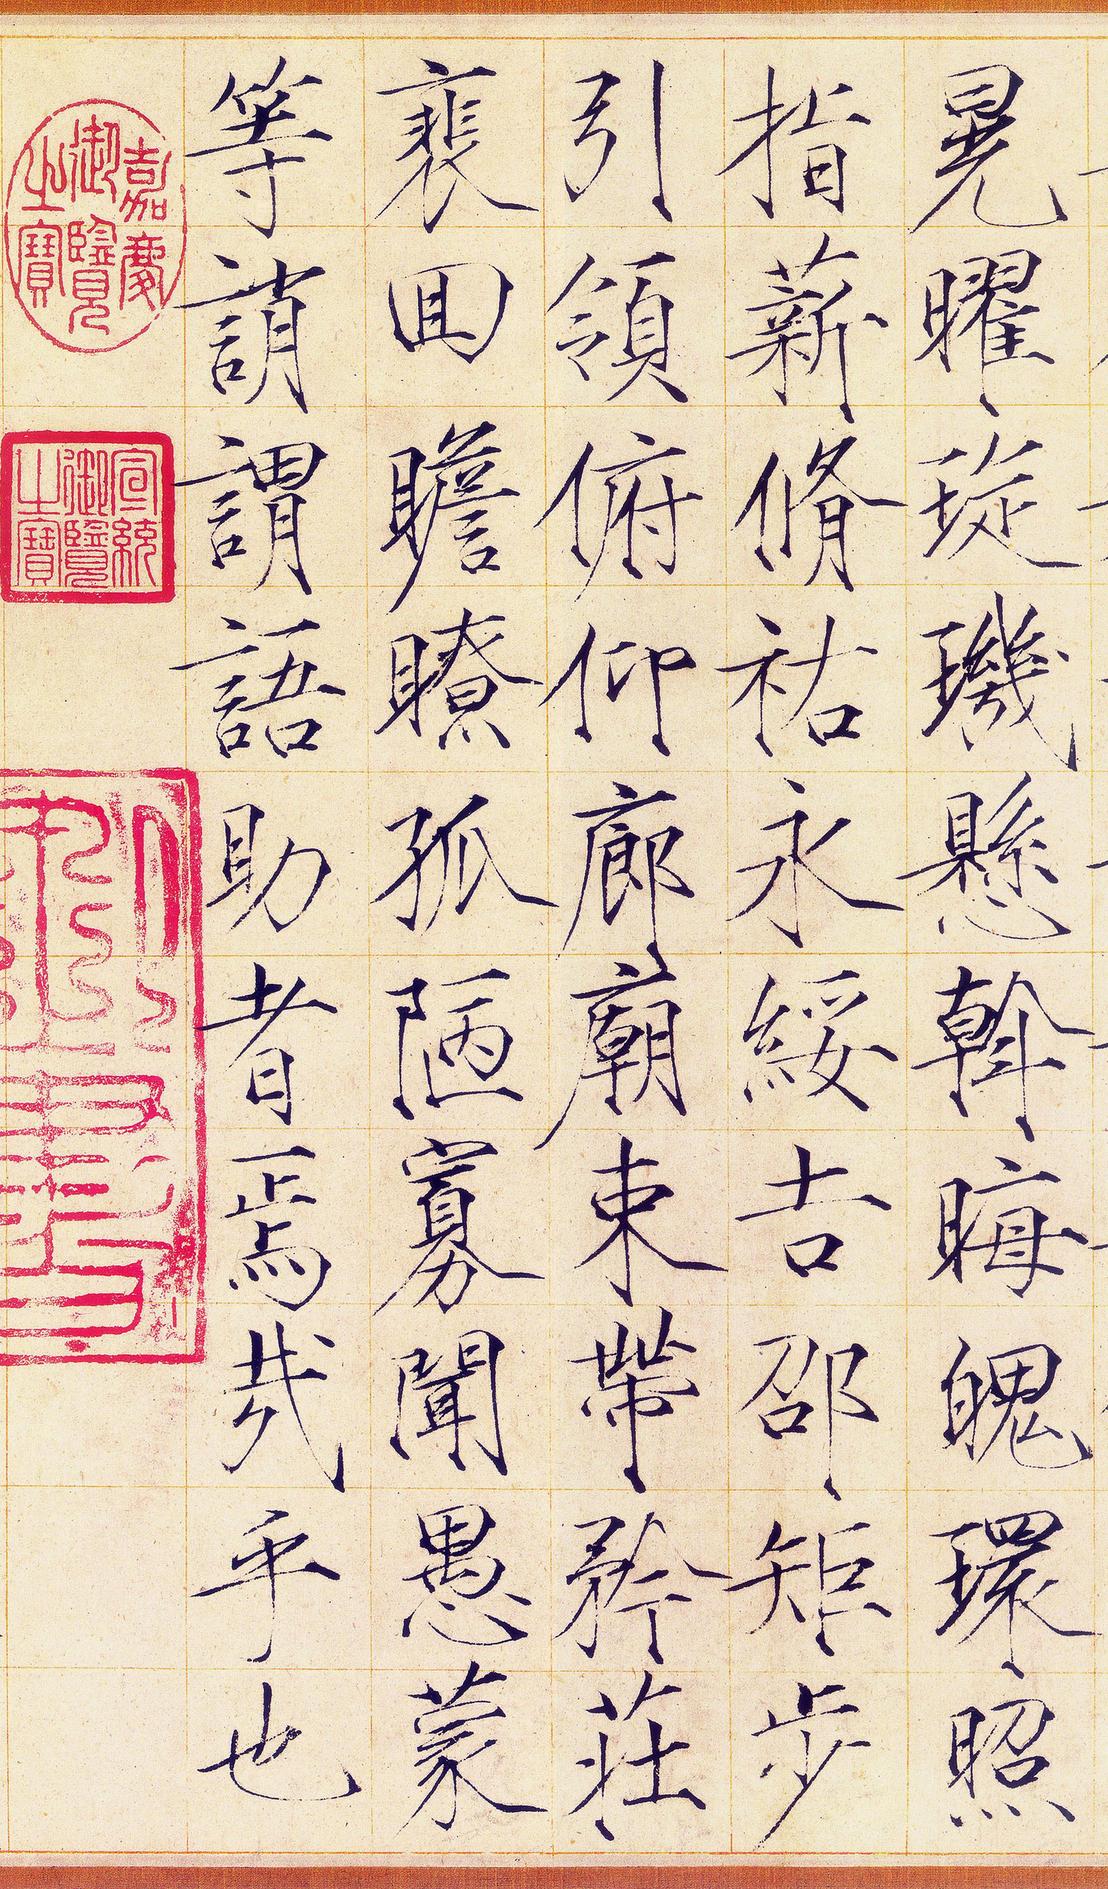 晃曜琁璣懸斡晦魄環照
指薪脩祐永綏吉邵矩步
引領俯仰廊廟束帶矜莊
裵囬瞻瞭孤陋寡聞愚蒙
等誚謂語助者焉哉乎也
嘉慶
御覽
之寶
宣統
御覽
之寶